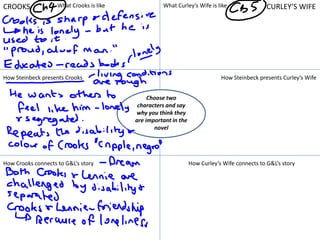 CROOKS Ch4 What Crooks is like
What Curley's Wife is like Ch5 CURLEY'S WIFE
Crooks is sharp & defensive
↳ he is lonely - but he is
used to it.
"proud, aloof man."
Educated - reads books / lonely
How Steinbeck presents Crooks - living conditions
are rough
How Steinbeck presents Curley's Wife
He wants others to
feel like him - lonely
& segregated.
Repeats the disability &
colour of Crooks "cripple, negro"
Choose two
characters and say
why you think they
are important in the
novel
How Crooks connects to G&L's story - Dream
How Curley's Wife connects to G&L's story
Both Crooks & Lennie are
challenged by disability &
separated
Crooks & Lennie - friendship
↳ Because of loneliness